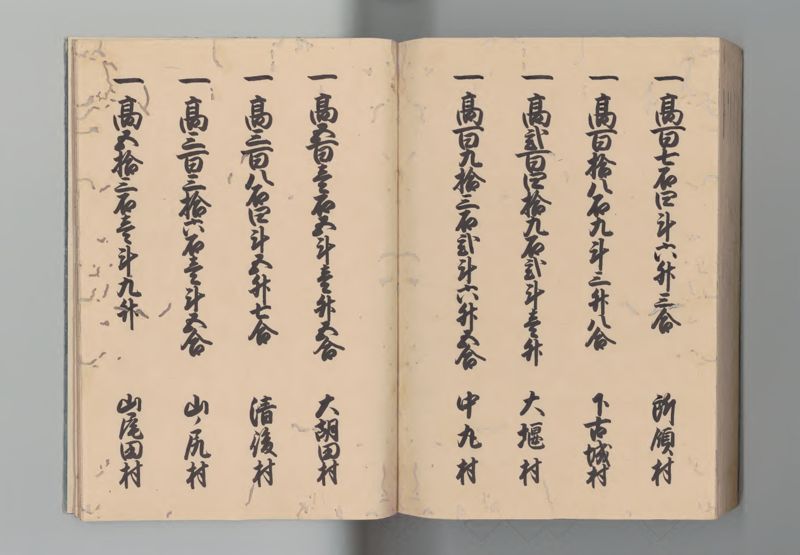 一 高百七石四斗六升三合 所領村
一 高百拾八石九斗三升八合 下古城村
一 高弐百四拾九石弐斗壱升 大堰村
一 高百九拾三石弐斗六升五合 中丸村
一 高五百壱石五斗壱升五合 大胡田村
一 高三百八石四斗五升七合 清後村
一 高三百三拾六石壱斗五合 山ノ尻村
一 高五拾三石壱斗九升 山尾田村